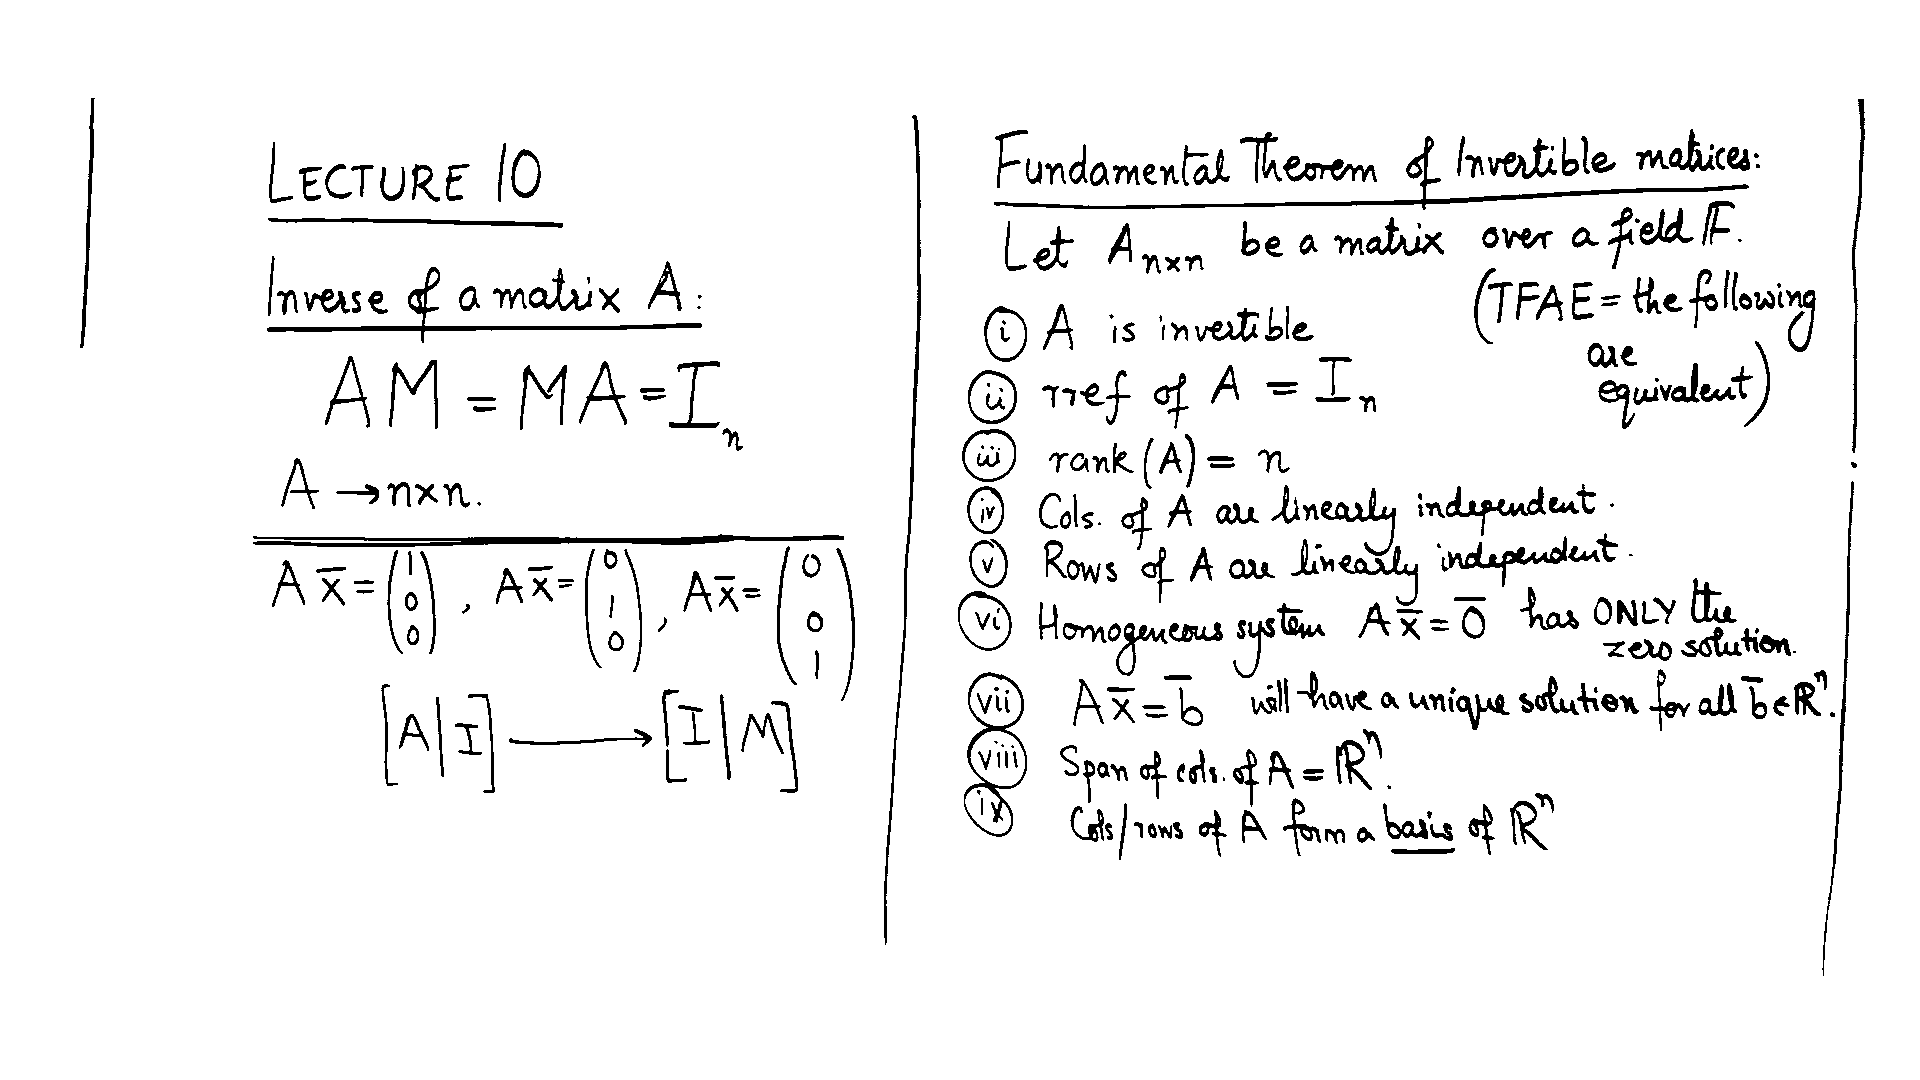 LECTURE 10
Inverse of a matrix A:
AM = MA = Iₙ
A → n×n.
A x̄ = (1 0 0), A x̄ = (0 1 0), A x̄ = (0 0 1)
[A|I] → [I|M]
Fundamental Theorem of Invertible matrices:
Let Aₙₓₙ be a matrix over a field 𝔽.
(TFAE = the following
are
equivalent)
(i) A is invertible
(ii) rref of A = Iₙ
(iii) rank(A) = n
(iv) Cols. of A are linearly independent.
(v) Rows of A are linearly independent.
(vi) Homogeneous system A x̄ = 0̄ has ONLY the
zero solution.
(vii) A x̄ = b̄ will have a unique solution for all b̄ ∈ ℝⁿ.
(viii) Span of cols. of A = ℝⁿ.
(ix) Cols/rows of A form a basis of ℝⁿ